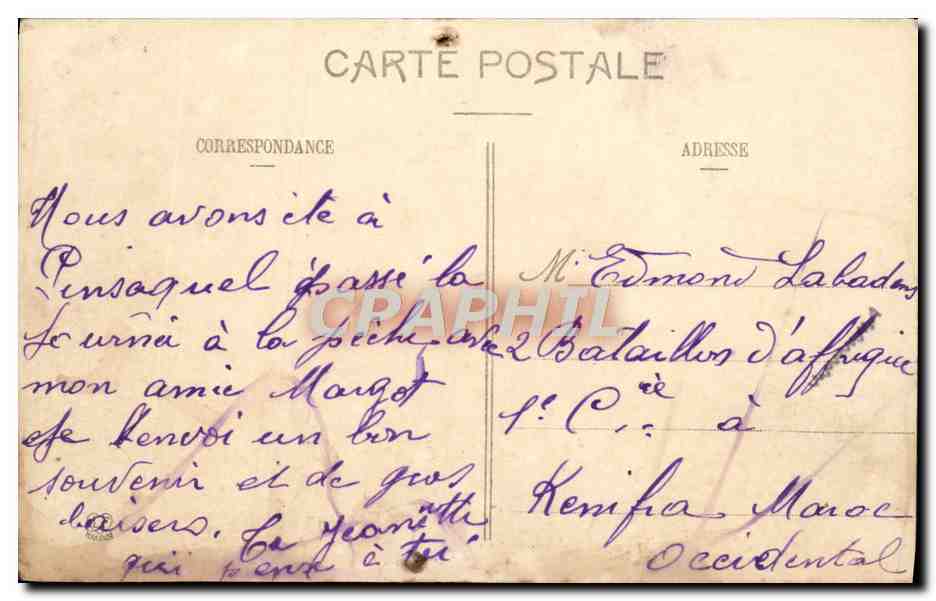 CARTE POSTALE
CORRESPONDANCE
Nous avons été à
Pinsaquel passé la
journé à la pêche avec
mon amie Margot
Je t'envoi un bon
souvenir et de gros
baisers. Ta Jeannette
qui pense à tui
ADRESSE
Mr Edmond Labadens
2 Bataillon d'affrique
1e Cie à
Kenifra Maroc
Occidental
CPAPHIL